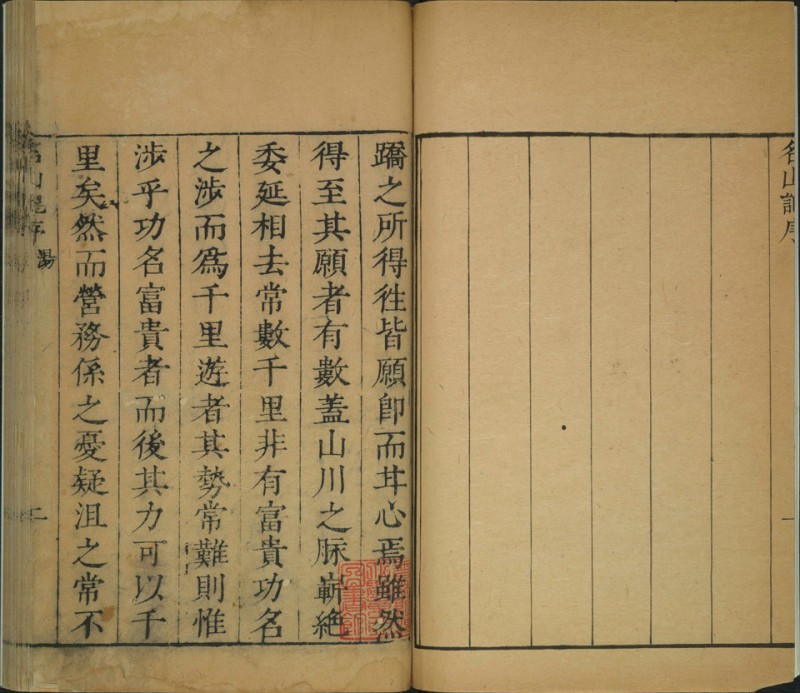 名山記序
蹻之所得徃皆願卽而幷心焉雖然
得至其願者有數蓋山川之脉嶄絶
委延相去常數千里非有富貴功名
之涉而爲千里遊者其勢常難則惟
涉乎功名富貴者而後其力可以千
里矣然而營務係之憂疑沮之常不
名山記序
湯
二